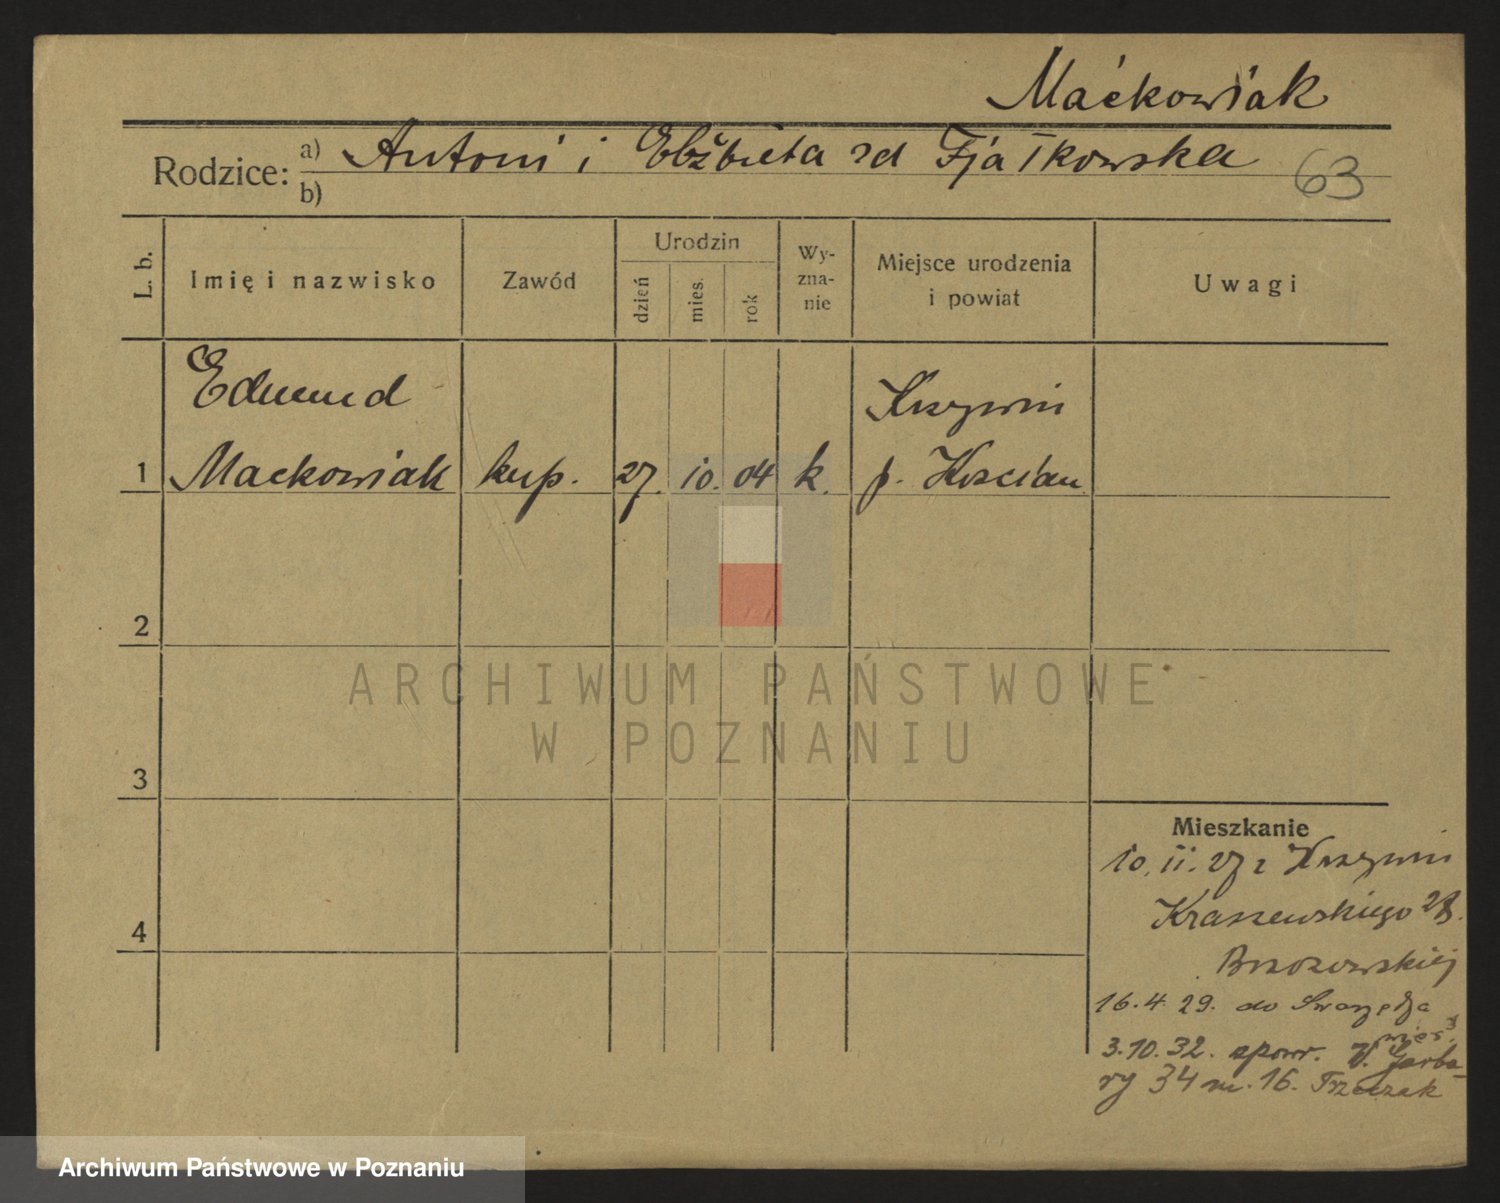 Maćkowiak
Rodzice: a) Antoni i Elżbieta zd Fjałkowska 63
b)
L. b. Imię i nazwisko Zawód Urodzin dzień mies. rok Wyznanie Miejsce urodzenia i powiat Uwagi
Edmund Krzywin
1 Maćkowiak kup. 27. 10. 04 k. p. Kościan
2
ARCHIWUM PAŃSTWOWE
W POZNANIU
3
Mieszkanie
10.11.27 z Krzywin
Kraszewskiego 28.
4
Brzozowskiej
16.4.29. do Swarzędza
3.10.32. spowr. Garba-
ry 34 m. 16. Trzeczak
Archiwum Państwowe w Poznaniu